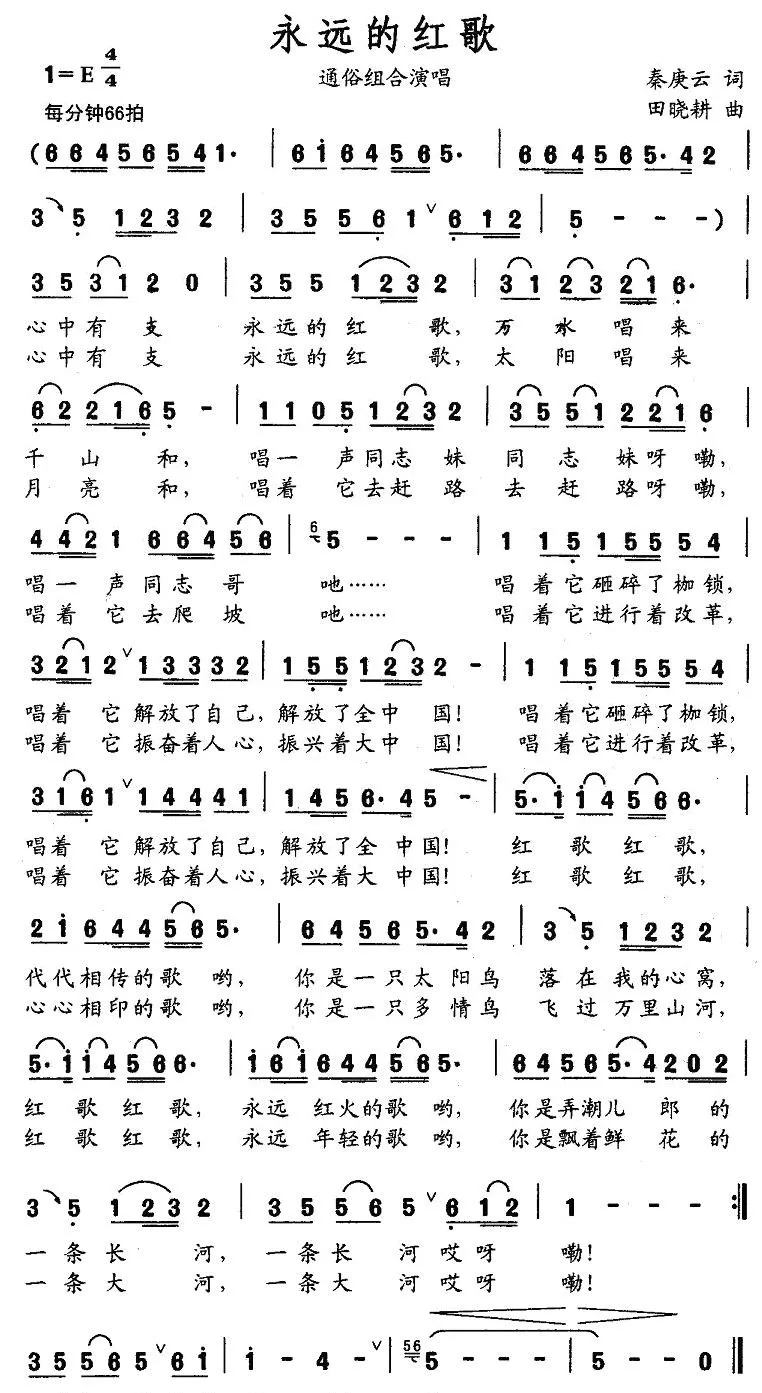 永远的红歌
1=E 4/4
通俗组合演唱
秦庚云 词
每分钟66拍
田晓耕 曲
(6 6 4 5 6 5 4 1· | 6 i 6 4 5 6 5· | 6 6 4 5 6 5· 4 2 |
3 5 1 2 3 2 | 3 5 5 6 1 ∨ 6 1 2 | 5 - - -) |
3 5 3 1 2 0 | 3 5 5 1 2 3 2 | 3 1 2 3 2 1 6· |
心中有支 永远的红 歌, 万水唱来
心中有支 永远的红 歌, 太阳唱来
6 2 2 1 6 5 - | 1 1 0 5 1 2 3 2 | 3 5 5 1 2 2 1 6 |
千山 和, 唱一 声同志妹 同志妹呀嘞,
月亮 和, 唱着 它去赶路 去赶路呀嘞,
4 4 2 1 6 6 4 5 6 | 6 5 - - - | 1 1 5 1 5 5 5 4 |
唱一 声同志哥 吔…… 唱着它砸碎了枷锁,
唱着 它去爬坡 吔…… 唱着它进行着改革,
3 2 1 2 ∨ 1 3 3 3 2 | 1 5 5 1 2 3 2 - | 1 1 5 1 5 5 5 4 |
唱着 它 解放了自己, 解放了全中 国! 唱着它砸碎了枷锁,
唱着 它 振奋着人心, 振兴着大中 国! 唱着它进行着改革,
3 1 6 1 ∨ 1 4 4 4 1 | 1 4 5 6· 4 5 - | 5· i i 4 5 6 6· |
唱着 它 解放了自己, 解放了全 中国! 红歌红歌,
唱着 它 振奋着人心, 振兴着大 中国! 红歌红歌,
2 i 6 4 4 5 6 5· | 6 4 5 6 5· 4 2 | 3 5 1 2 3 2 |
代代相传的歌 哟, 你是一只太阳鸟 落在我的心窝,
心心相印的歌 哟, 你是一只多情鸟 飞过万里山河,
5· i i 4 5 6 6· | i 6 i 6 4 4 5 6 5· | 6 4 5 6 5· 4 2 0 2 |
红歌红歌, 永远 红火的歌 哟, 你是弄潮儿 郎的
红歌红歌, 永远 年轻的歌 哟, 你是飘着鲜 花的
3 5 1 2 3 2 | 3 5 5 6 5 ∨ 6 1 2 | 1 - - - :‖
一条长 河, 一条长 河哎呀 嘞!
一条大 河, 一条大 河哎呀 嘞!
3 5 5 6 5 ∨ 6 i | i - 4 - ∨ | 56 5 - - - | 5 - - 0 ‖